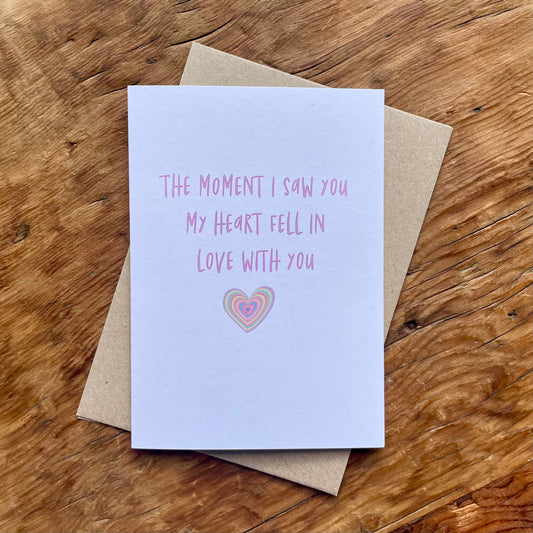 THE MOMENT I SAW YOU
MY HEART FELL IN
LOVE WITH YOU